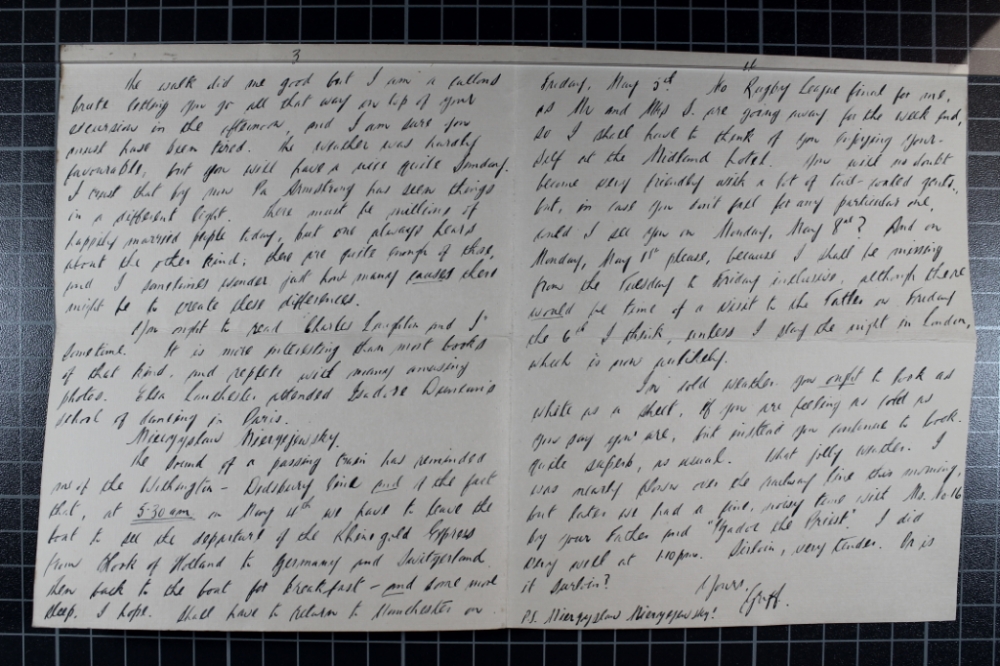 3
The walk did me good but I am a callous
brute letting you go all that way on top of your
excursion in the afternoon, and I am sure you
must have been tired. The weather was hardly
favourable, but you will have a nice quite Sunday.
I trust that by now Pa Armstrong has seen things
in a different light. There must be millions of
happily married people today, but one always hears
about the other kind; there are quite enough of these,
and I sometimes wonder just how many causes there
might be to create these differences.
You ought to read "Charles Laughton and I"
sometime. It is more interesting than most books
of that kind, and replete with many amusing
photos. Elsa Lanchester attended Isadore Duncan's
school of dancing in Paris.
Mieczyslaw Mierzejewsky.
The sound of a passing train has reminded
me of the Withington - Didsbury line and of the fact
that, at 5-30 am on May 4th we have to leave the
boat to see the departure of the Rheingold Express
from Hook of Holland to Germany and Switzerland
then back to the boat for breakfast - and some more
sleep, I hope. Shall have to return to Manchester on
4
Friday, May 5th. No Rugby League final for me,
as Mr and Mrs S. are going away for the week end,
so I shall have to think of you enjoying your-
self at the Midland Hotel. You will no doubt
become very friendly with a lot of tail-coated gents.,
but, in case you don't fall for any particular one,
could I see you on Monday, May 8th? And on
Monday, May 1st please, because I shall be missing
from the Tuesday to Friday inclusive, although there
would be time of a visit to the Father on Friday
the 6th I think, unless I stay the night in London,
which is now unlikely.
In cold weather you ought to look as
white as a sheet, if you are feeling as cold as
you say you are, but instead you continue to look
quite superb, as usual. What jolly weather. I
was nearly blown over the railway line this morning,
but later we had a fine, noisy time with Ms. No 16
by your Father and "Zadok the Priest". I did
very well at 1-10 pm. Sirloin, very tender. Or is
it surloin?
Yours,
Griff.
P.S. Mieczyslaw Mierzejewsky!